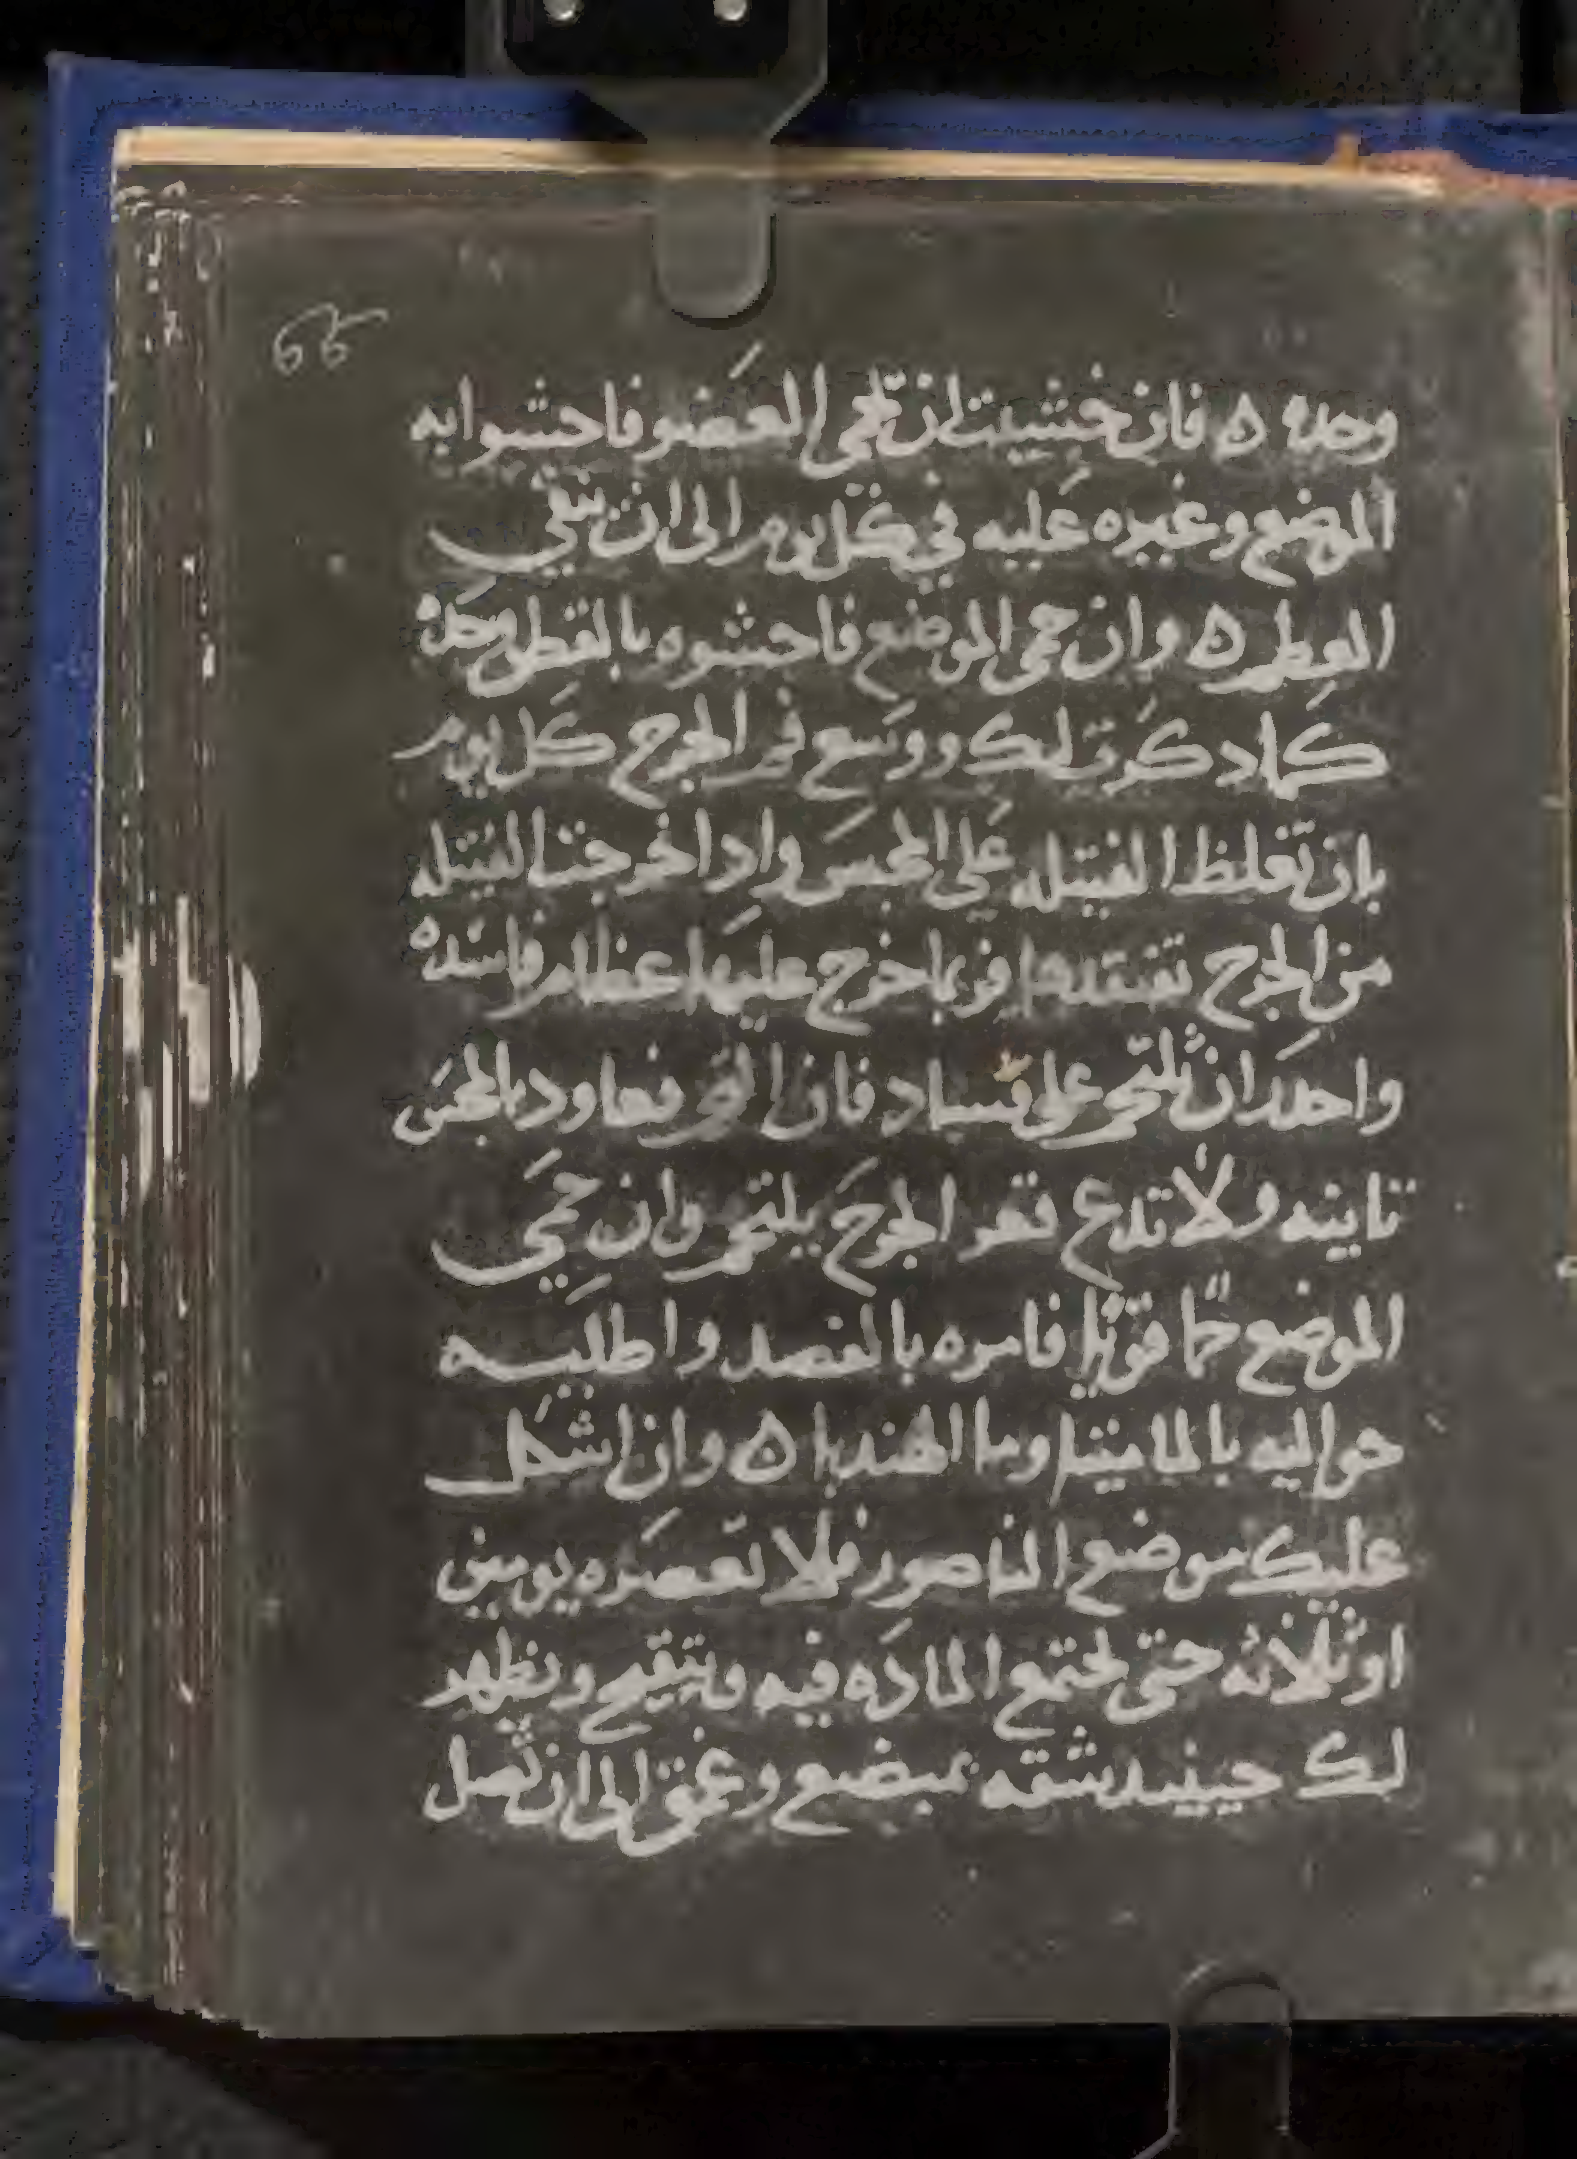 66
وحده ه فان خشيت ان تحمى العضو فاحشوا به
الموضع وغيره عليه في كل يوم الى ان ينقي
العظم ه وان حمى الموضع فاحشوه بالقطن وحده
كما دكرت لك ووسع فم الجرح كل يوم
بان تغلظ الفتيله على المجس وادا خرجت الفتيله
من الجرح تفتقدها فربما خرج عليها عظام فاسده
واحدر ان يلتحم على فساد فان التحم فعاود بالمجس
تانيه ولا تدع فم الجرح يلتحم وان حمى
الموضع حما قويا فامره بالفصد واطليه
حواليه بالماميتا وما الهندبا ه وان اشكل
عليك موضع الناصور فلا تعصره يومين
او ثلاثه حتى تجتمع الماده فيه وتتقيح ويظهر
لك حينيد شقه بمبضع وعمق الى ان تصل